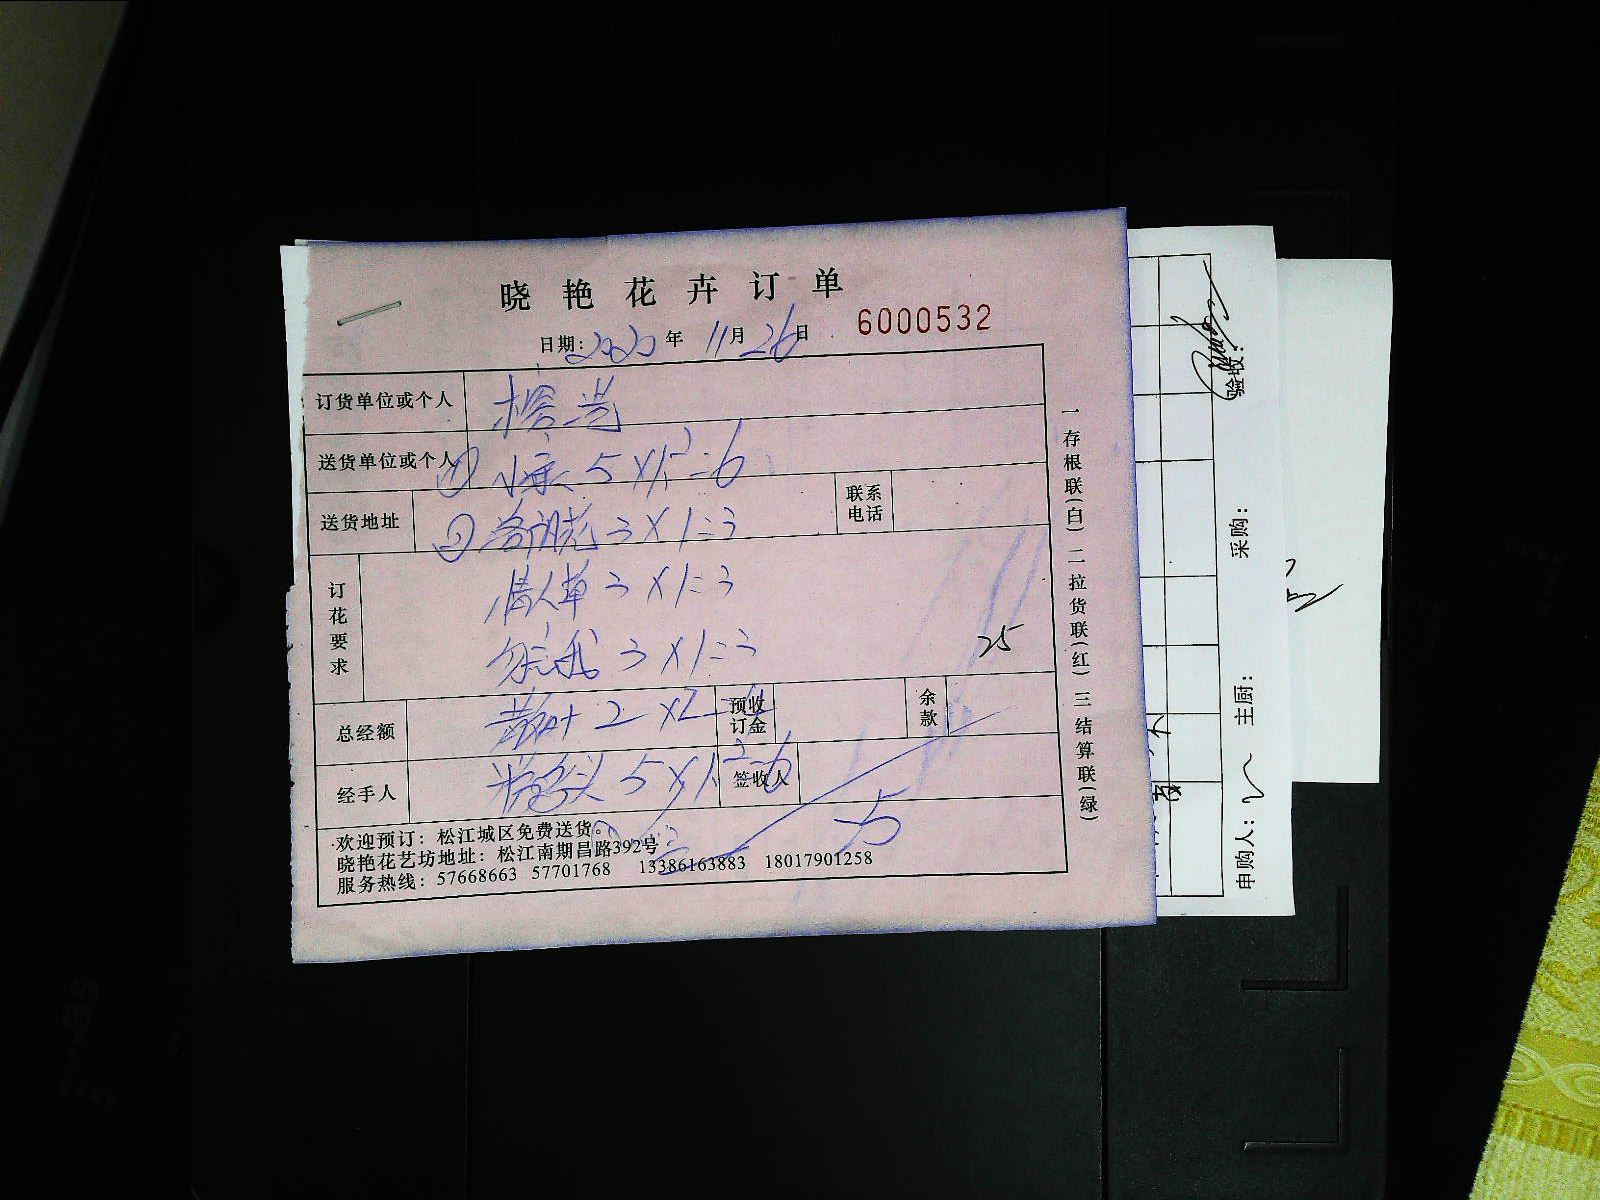 晓艳花卉订单
日期：2020年11月26日 6000532
订货单位或个人
送货单位或个人 ① 5×1.2=6
送货地址 ② 3×1=3 联系电话
订花要求
情人草 3×1=3
勿忘我 3×1=3
25
总经额 2×2=4 预收订金 余款
经手人 5×1.2=6 签收人
欢迎预订：松江城区免费送货。
晓艳花艺坊地址：松江南期昌路392号
服务热线：57668663 57701768 13386163883 18017901258
一存根联(白)二拉货联(红)三结算联(绿)
申购人： 主厨： 采购： 验收：